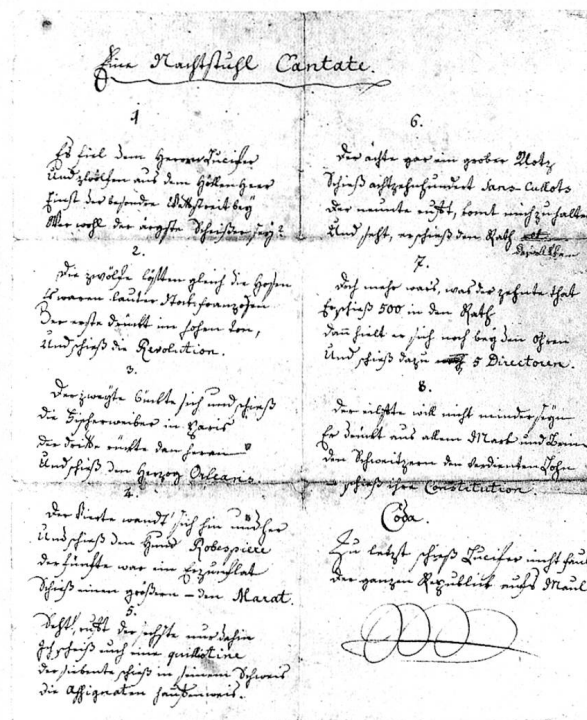 Eine Nachtstuhl Cantate.
1
Es fiel dem Herrn Lucifer
und zwölfen aus dem Höllen Heer
Einst der besondre Wettstreit bey
Wer wohl der ärgste Scheißer sey?
2.
Die zwölfe lößten gleich die Hosen
Es waren lauter Stockfranzosen
Der erste drückt im hohen Ton,
Und schieß die Revolution.
3.
Der zweyte bückte sich und schieß
die Fischerweiber in Paris
der dritte rückte den heran
Und schieß den Herzog Orleans.
4.
Der Vierte wandt' sich hin und her
Und schieß den Hund Robespiere
der fünfte war ein Erzunflat
Schieß einen größern – den Marat.
5.
Seht, ruft der sechste nur dahin
Ich schieß euch eine quillotine
der siebente schieß in seinem Schweis
die Assignaten haufenweis.
6.
Der achte gar ein grober Motz
Schieß achtzehnhundert Sans Culots
Der neunte ruft, komt mich zu halten
Und seht, er schieß den Rath
der alten
7.
Doch mehr war's, was der zehnte that
Er schieß 500 in den Rath
dann hielt er sich noch bey den Ohren
Und schieß dazu noch 5 Directoren.
8.
der eilfte will nicht minder seyn
Er drückt aus allem Mark und Bein
den Schweitzern den verdienten Lohn
schieß ihre Constitution.
Coda.
Zu letzt schieß Lucifer nicht faul
der ganzen Republick aufs Maul